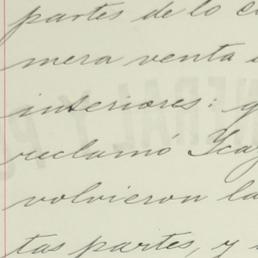 partes de lo c
mera venta
interiores: q
reclamó Ycaz
volvieron la
tas partes, y